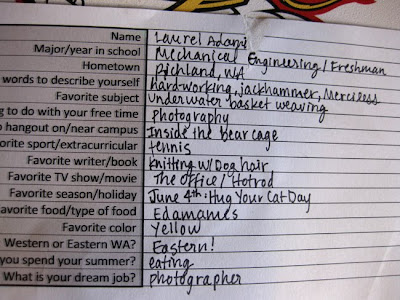 Name Laurel Adams
Major/year in school Mechanical Engineering / Freshman
Hometown Richland, WA
words to describe yourself hardworking, jackhammer, Merciless
Favorite subject Underwater basket weaving
g to do with your free time photography
o hangout on/near campus Inside the bear cage
orite sport/extracurricular tennis
Favorite writer/book Knitting w/ Dog hair
Favorite TV show/movie The Office / Hotrod
Favorite season/holiday June 4th: Hug Your Cat Day
avorite food/type of food Edamames
Favorite color Yellow
Western or Eastern WA? Eastern!
you spend your summer? eating
What is your dream job? photographer